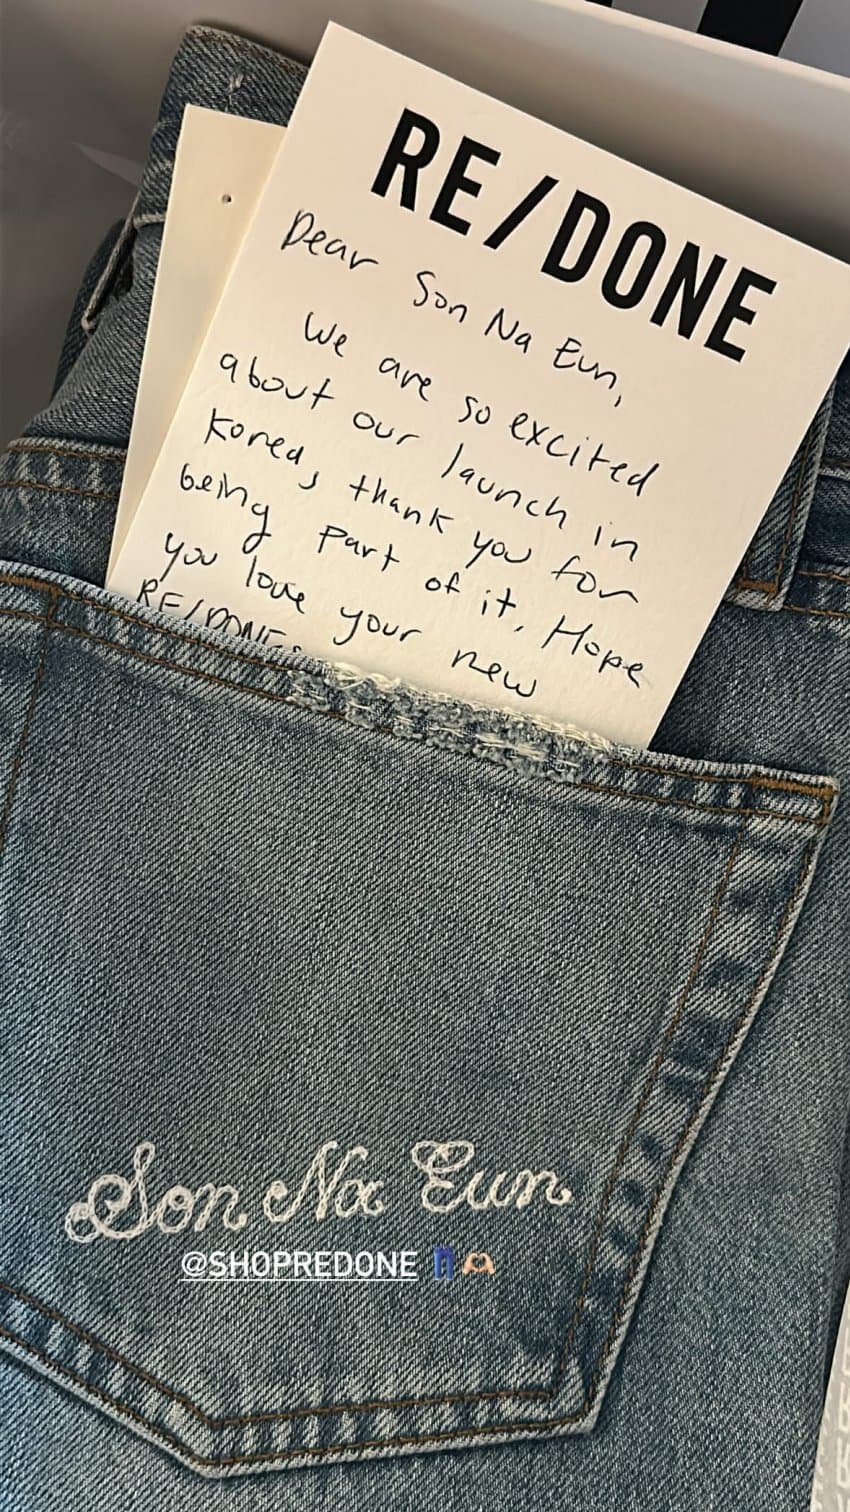 RE/DONE
Dear Son Na Eun,
We are so excited
about our launch in
Korea, thank you for
being part of it. Hope
you love your new
RE/DONE
Son Na Eun
@SHOPREDONE